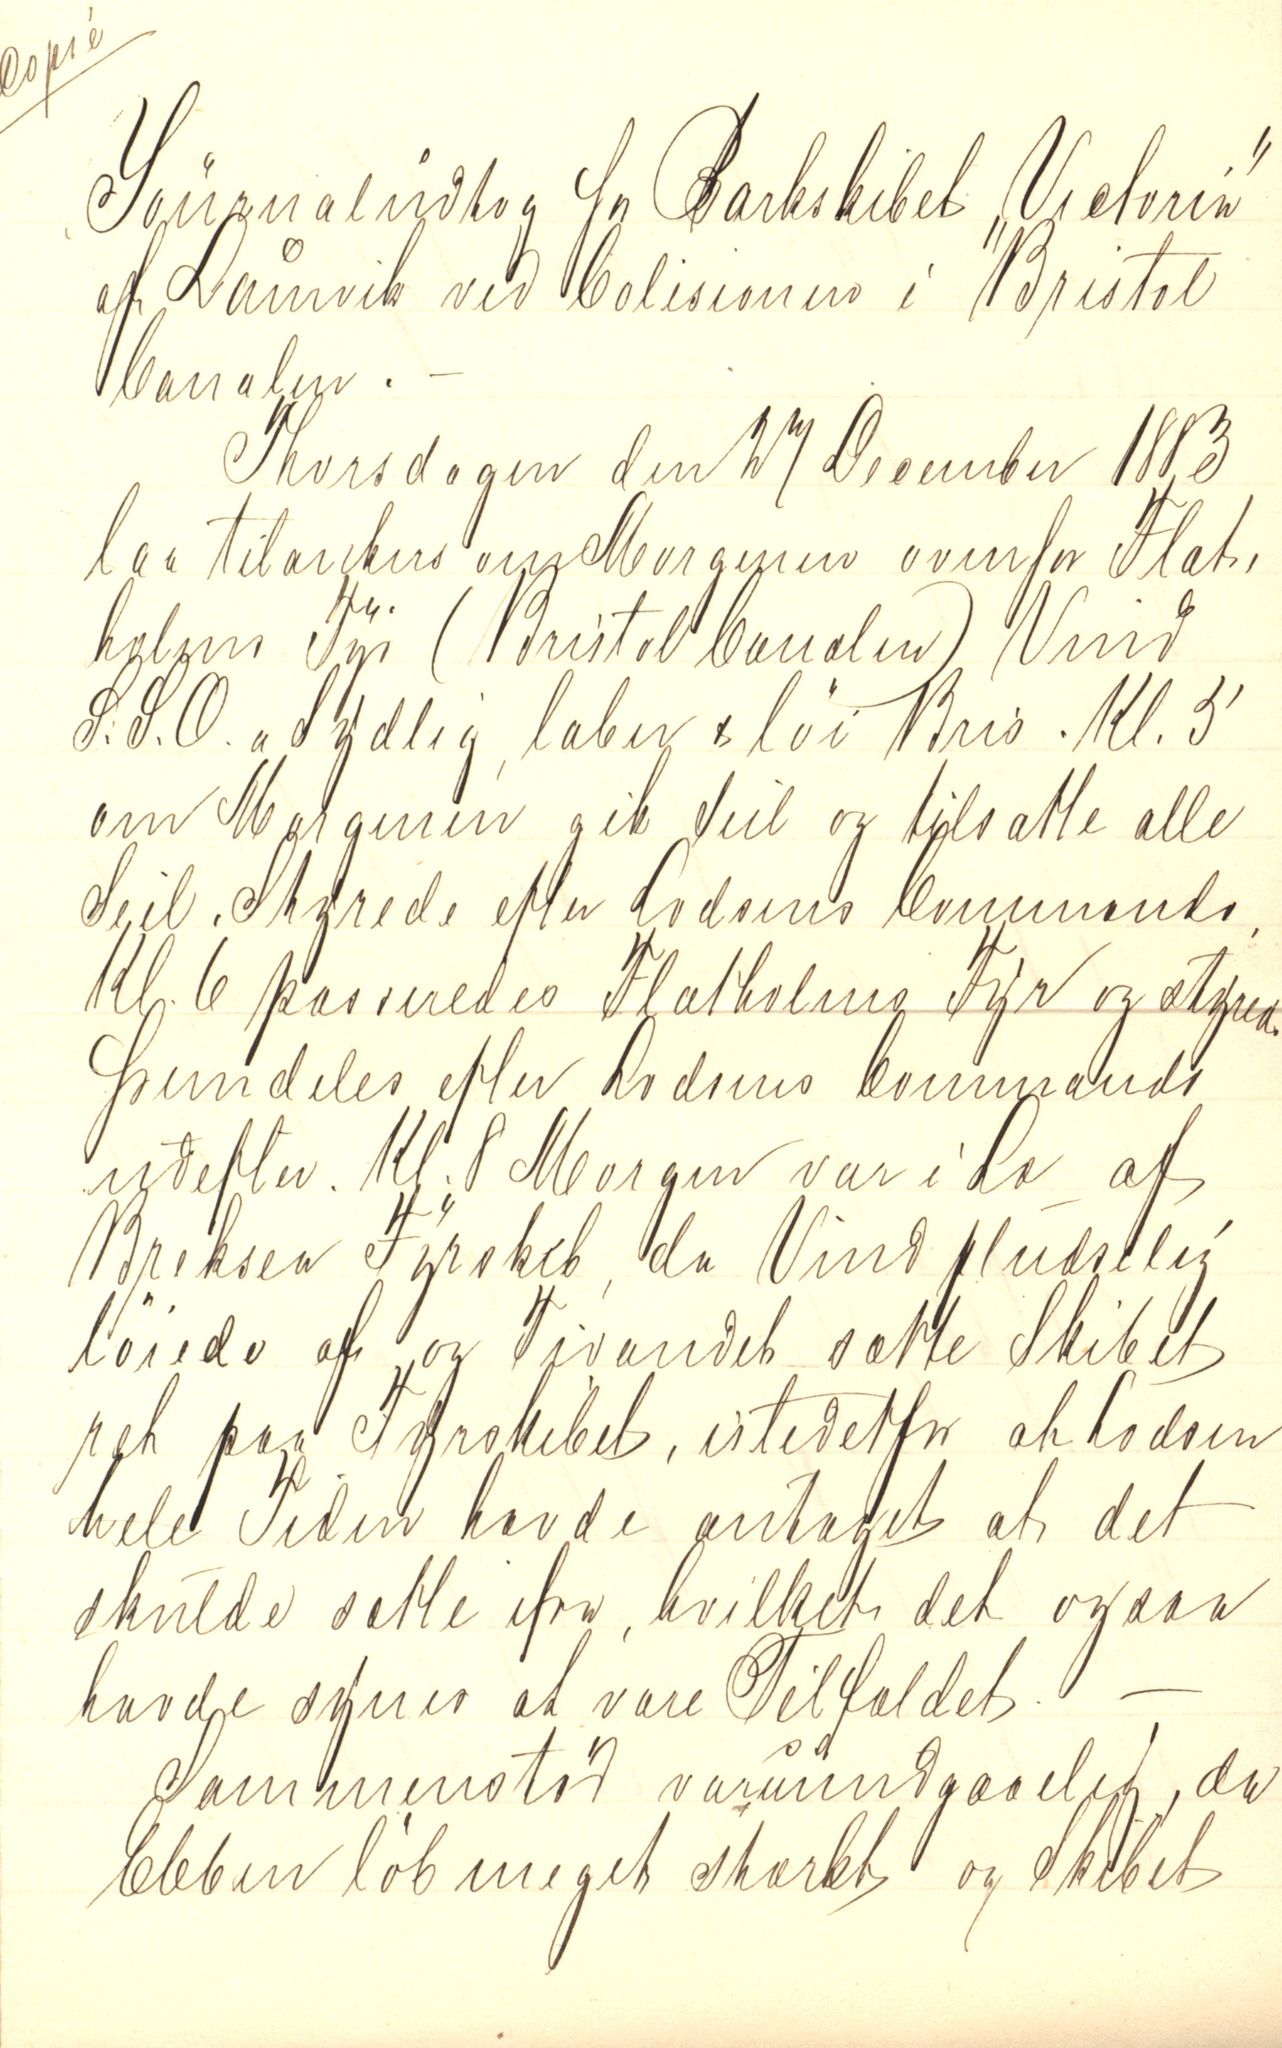 Copie
Journaludtog fra Barkskibet „Victoria"
af Laurvik ved Colisionen i Bristol
Canalen. —
Thorsdagen den 27 December 1883
laa tilankers om Morgenen ovenfor Flat-
holms Fyr (Bristol Canalen) Vind
S.S.O. a Sydlig, laber & löi Bris. Kl. 5
om Morgenen gik Seil og tilsatte alle
Seil. Styrede efter Lodsens Commando,
Kl. 6 passeredes Flatholms Fyr og styred.
fremdeles efter Lodsens Commando
udefter. Kl. 8 Morgen var i Læ af
Breksea Fyrskib, da Vind pludselig
löiede af og Tivandet satte Skibet
ret paa Fyrskibet, istedetfor at Lodsen
hele Tiden havde antaget at det
skulde sætte ifra, hvilket det ogsaa
havde synes at være Tilfældet. —
Sammenstöd var uundgaaelig, da
Ebben löb meget stærkt og Skibet